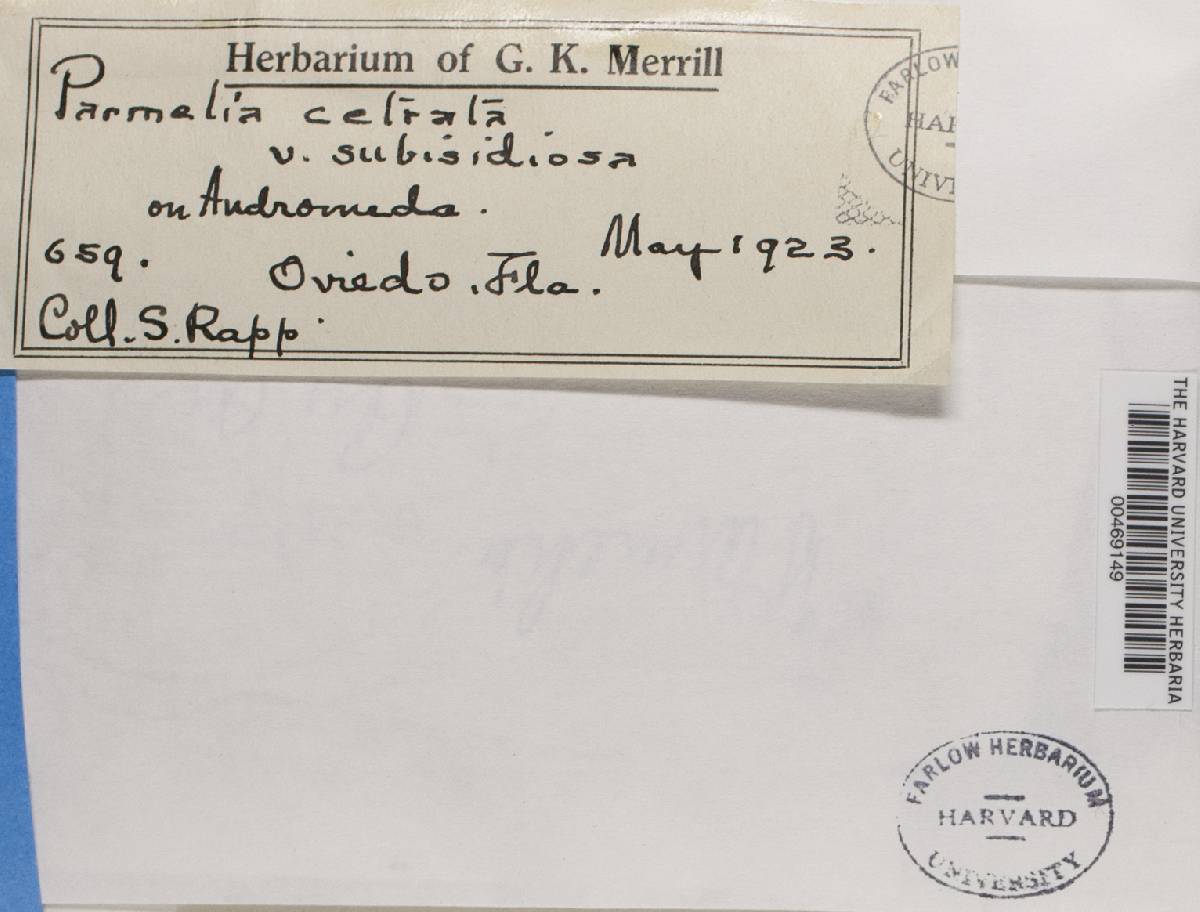 Herbarium of G. K. Merrill
Parmelia cetrata
v. subisidiosa
on Andromeda.
659.
Oviedo, Fla. May 1923.
Coll. S. Rapp.
FARLOW
HAR
UNIV
THE HARVARD UNIVERSITY HERBARIA
00469149
FARLOW HERBARIUM
HARVARD
UNIVERSITY